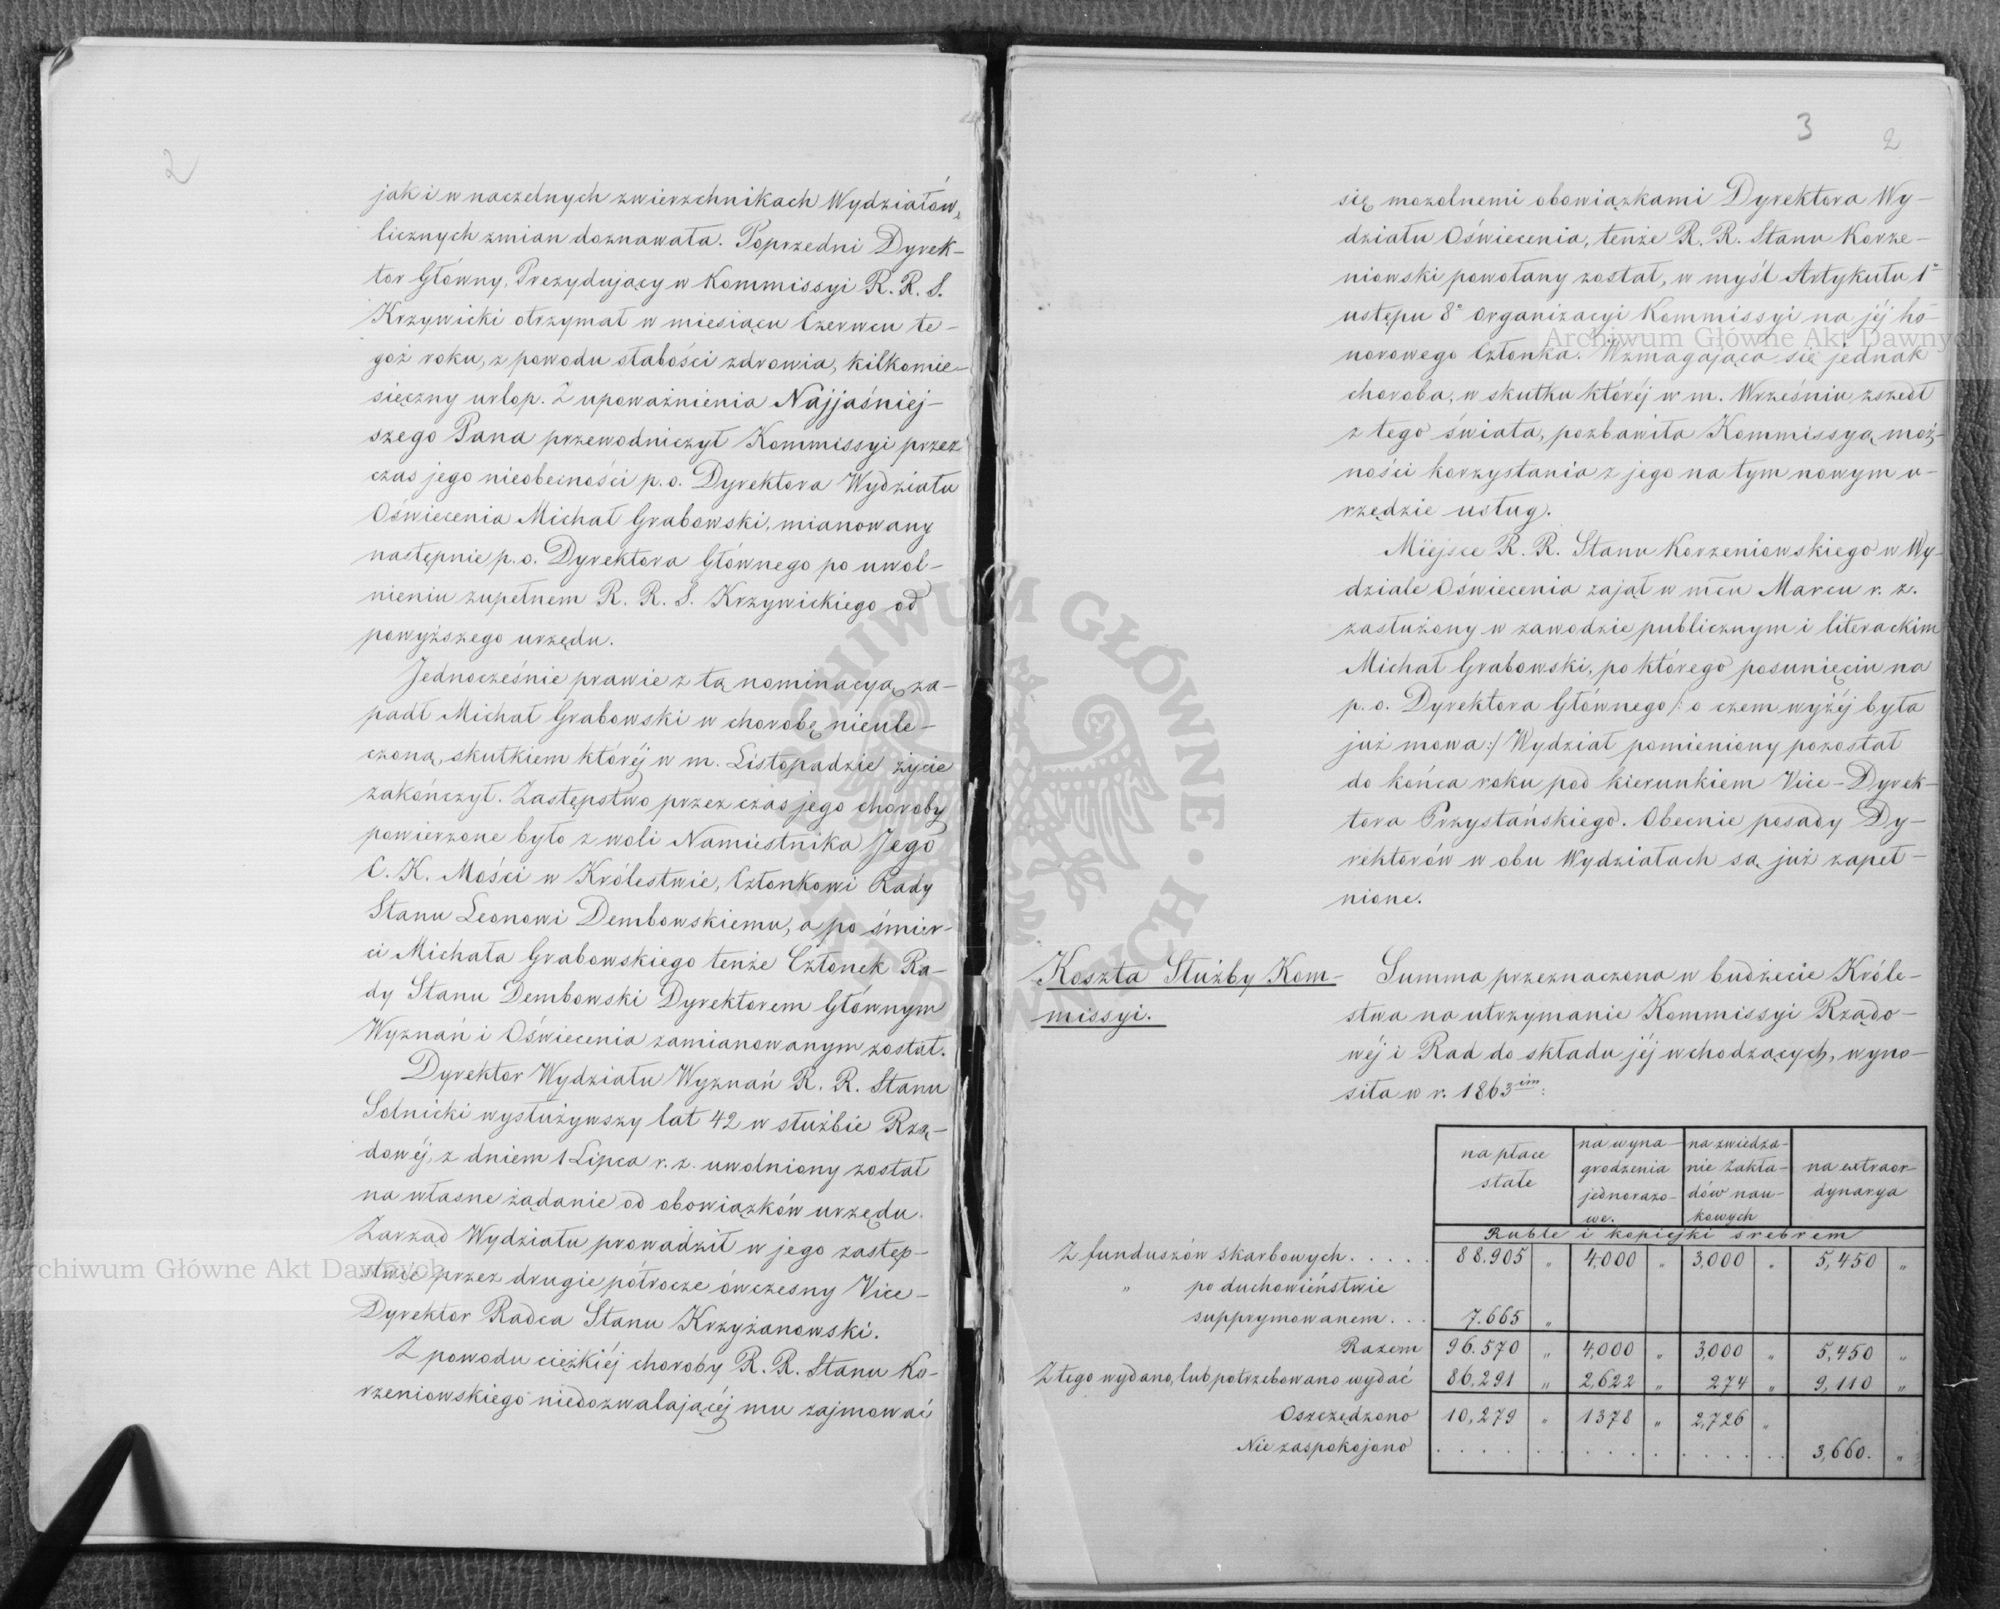 2
jak i w naczelnych zwierzchnikach Wydziałów,
licznych zmian doznawała. Poprzedni Dyrek-
tor Główny, Prezydujący w Kommissyi R. R. S.
Krzywicki otrzymał w miesiącu Czerwcu te-
goż roku, z powodu słabości zdrowia, kilkomie-
sięczny urlop. Z upoważnienia Najjaśniej-
szego Pana przewodniczył Kommissyi przez
czas jego nieobecności p. o. Dyrektora Wydziału
Oświecenia Michał Grabowski, mianowany
następnie p. o. Dyrektora Głównego po uwol-
nieniu zupełnem R. R. S. Krzywickiego od
powyższego urzędu.
Jednocześnie prawie z tą nominacyą, za-
padł Michał Grabowski w chorobę nieule-
czoną, skutkiem któréj w m. Listopadzie życie
zakończył. Zastępstwo przez czas jego choroby
powierzone było z woli Namiestnika Jego
C. K. Mości w Królestwie, Członkowi Rady
Stanu Leonowi Dembowskiemu, a po śmier-
ci Michała Grabowskiego tenże Członek Ra-
dy Stanu Dembowski Dyrektorem Głównym
Wyznań i Oświecenia zamianowanym został.
Dyrektor Wydziału Wyznań R. R. Stanu
Solnicki wysłużywszy lat 42 w służbie Rzą-
dowéj, z dniem 1 Lipca r. z. uwolniony został
na własne żądanie od obowiązków urzędu.
Zarząd Wydziału prowadził w jego zastęp-
stwie przez drugie półrocze ówczesny Vice-
Dyrektor Radca Stanu Krzyżanowski.
Z powodu ciężkiéj choroby R. R. Stanu Ko-
rzeniowskiego niedozwalającéj mu zajmować
3
2
się mozolnemi obowiązkami Dyrektora Wy-
działu Oświecenia, tenże R. R. Stanu Korze-
niowski powołany został, w myśl Artykułu 1°
ustępu 8° organizacyi Kommissyi na jéj ho-
norowego Członka. Wzmagająca się jednak
choroba, w skutku któréj w m. Wrześniu zszedł
z tego świata, pozbawiła Kommissyą moż-
ności korzystania z jego na tym nowym u-
rzędzie usług.
Miejsce R. R. Stanu Korzeniowskiego w Wy-
dziale Oświecenia zajął w mcu Marcu r. z.
zasłużony w zawodzie publicznym i literackim
Michał Grabowski, po którego posunięciu na
p. o. Dyrektora Głównego /: o czem wyżéj była
już mowa :/ Wydział pomieniony pozostał
do końca roku pod kierunkiem Vice-Dyrek-
tora Przystańskiego. Obecnie posady Dy-
rektorów w obu Wydziałach są już zapeł-
nione.
Koszta Służby Kom-
missyi.
Summa przeznaczona w budżecie Króle-
stwa na utrzymanie Kommissyi Rządo-
wéj i Rad do składu jéj wchodzących, wyno-
siła w r. 1863im:
na płace stałe | na wyna-grodzenia jednorazo-we. | na zwiedza-nie Zakła-dów nau-kowych | na extraor-dynarya
Ruble i kopiejki srebrem
Z funduszów skarbowych . . . . . 88.905 „ 4,000 „ 3,000 „ 5,450 „
„ po duchowieństwie
supprymowanem . . . 7.665 „
Razem 96.570 „ 4,000 „ 3,000 „ 5,450 „
Z tego wydano, lub potrzebowano wydać 86,291 „ 2,622 „ 274 „ 9,110 „
Oszczędzono 10,279 „ 1378 „ 2,726 „
Nie zaspokojono . . . . . . . . . . . . 3,660. „
Archiwum Główne Akt Dawnych
Archiwum Główne Akt Dawnych
ARCHIWUM GŁÓWNE · AKT DAWNYCH ·